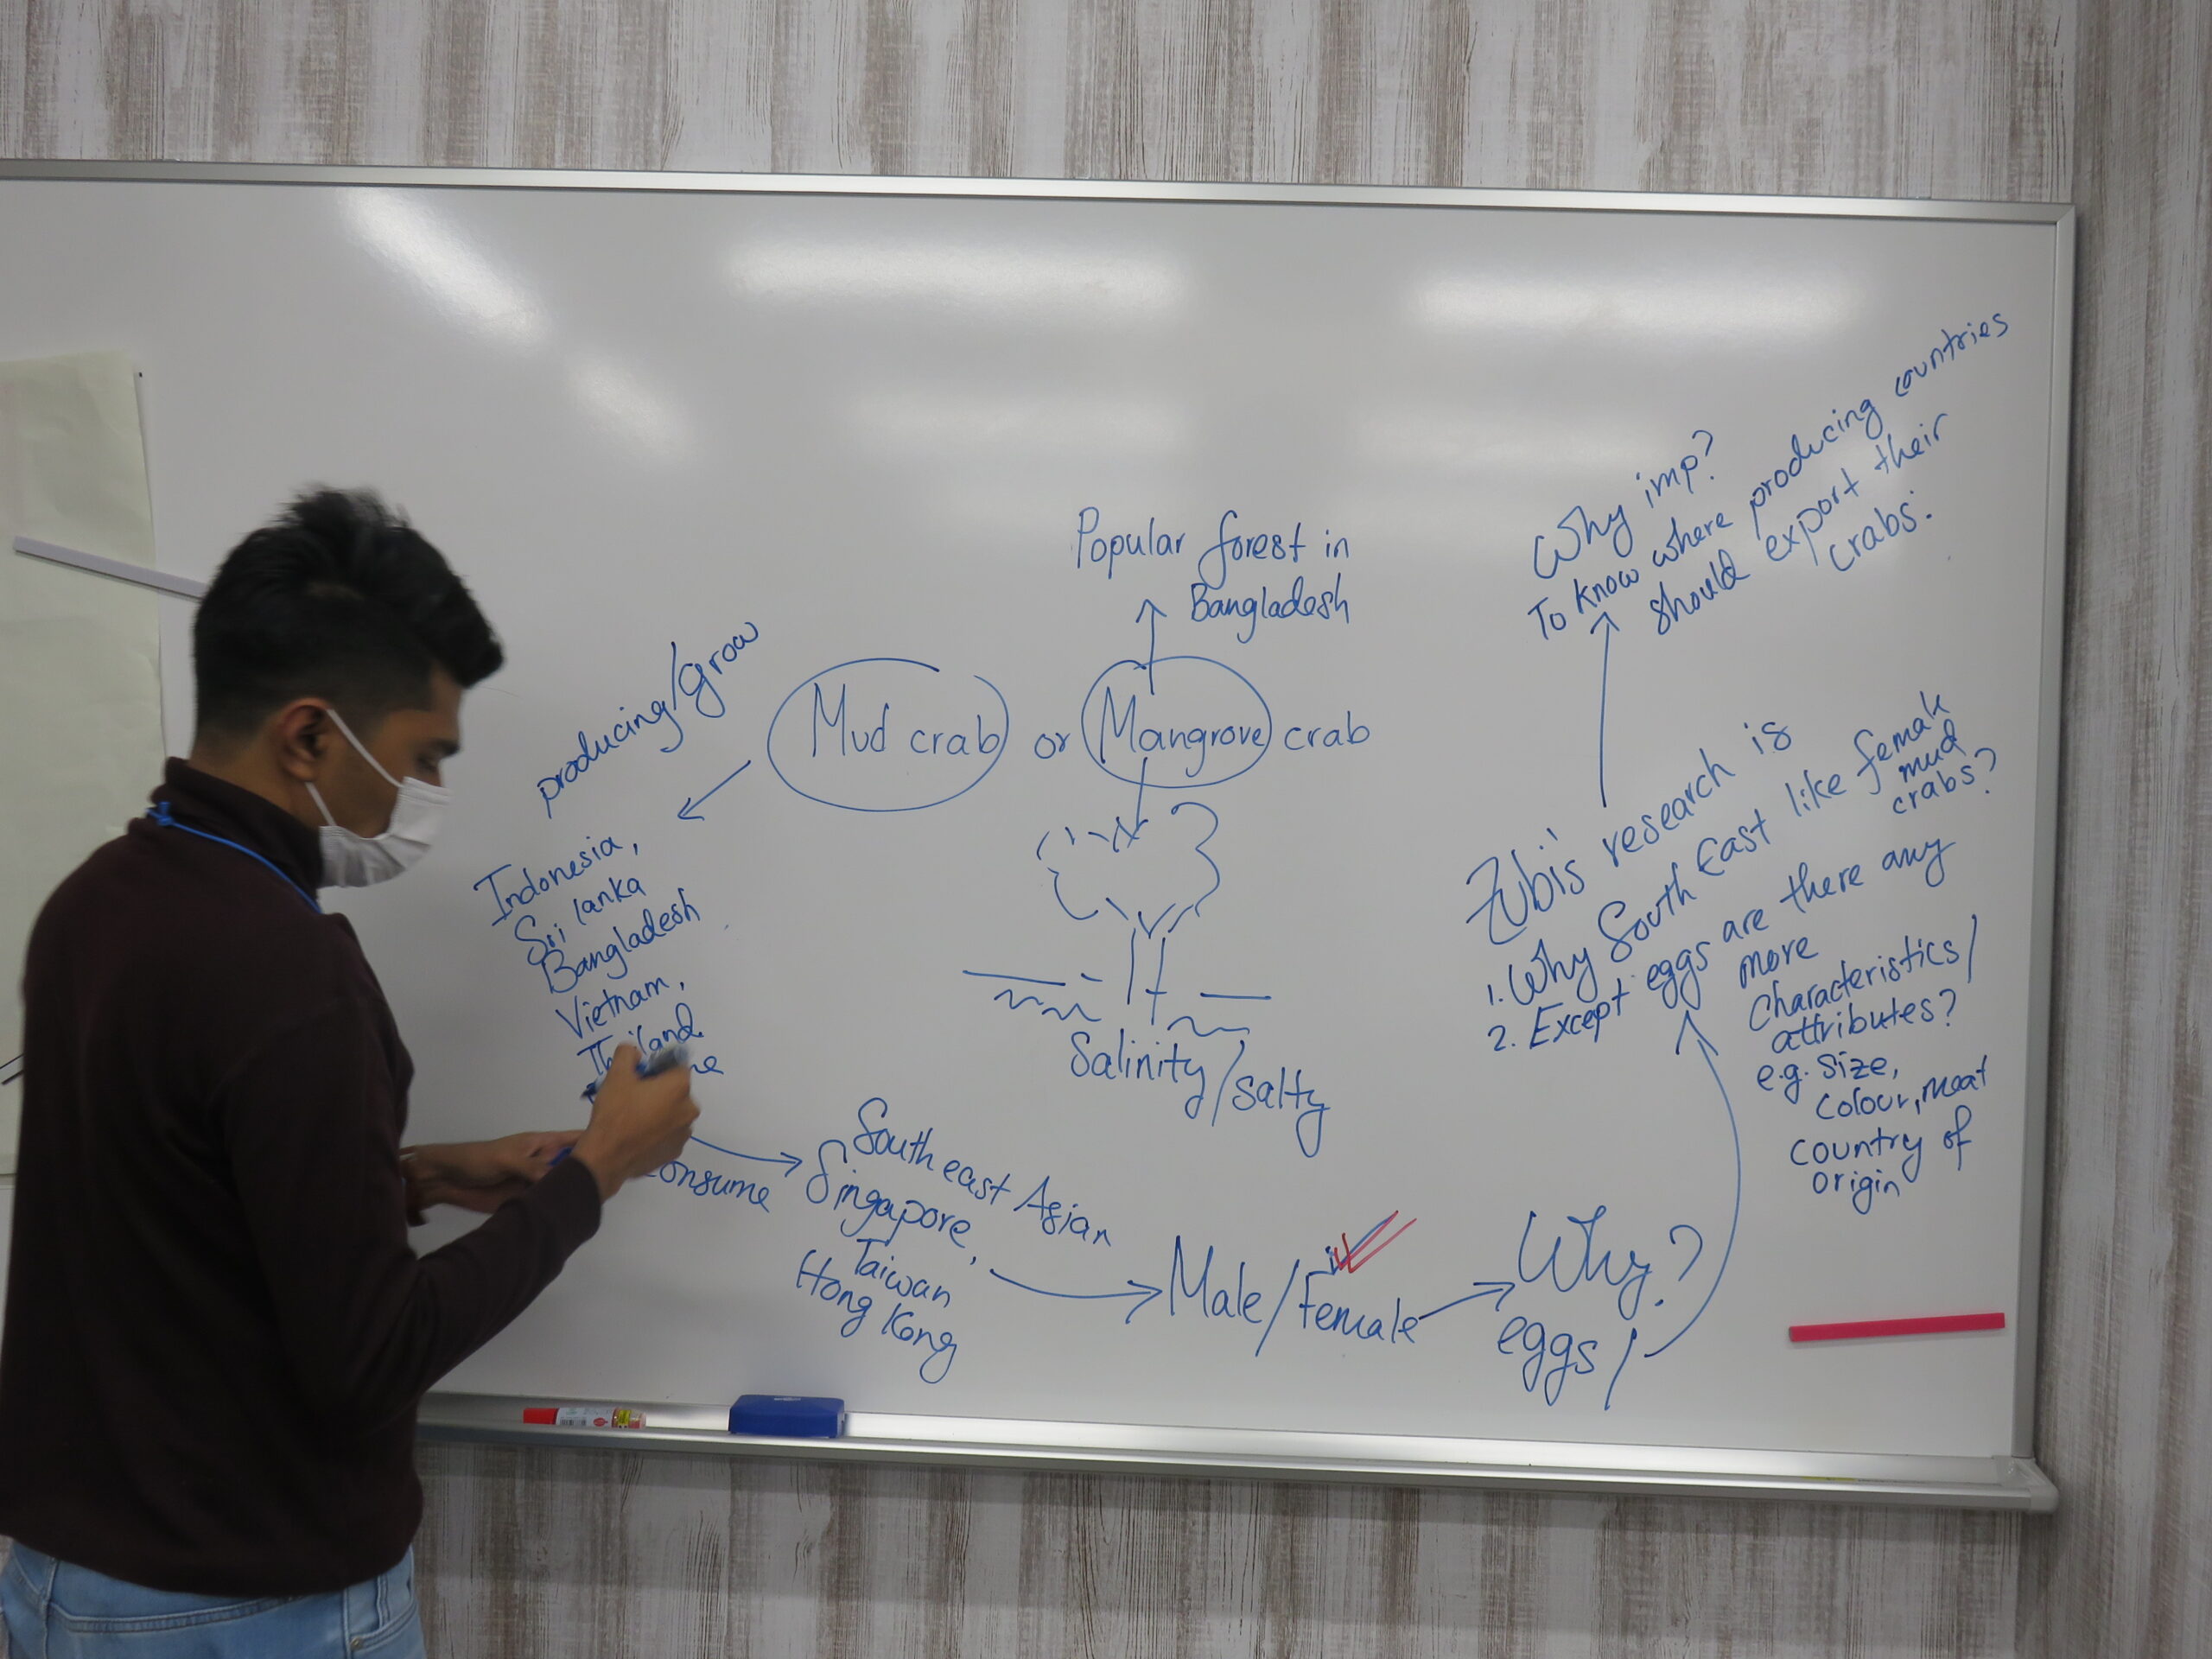 Popular forest in
Bangladesh
Mud crab or Mangrove crab
Salinity/salty
producing/grow
Indonesia,
Sri lanka
Bangladesh
Vietnam,
Thailand
consume
South east Asian
Singapore,
Taiwan
Hong Kong
Male/Female
Why?
eggs/
Why imp?
To know where producing countries
should export their
crabs.
Zubi's research is
1. Why South East like female
mud
crabs?
2. Except eggs are there any
more
characteristics/
attributes?
e.g. size,
colour, meat
country of
origin